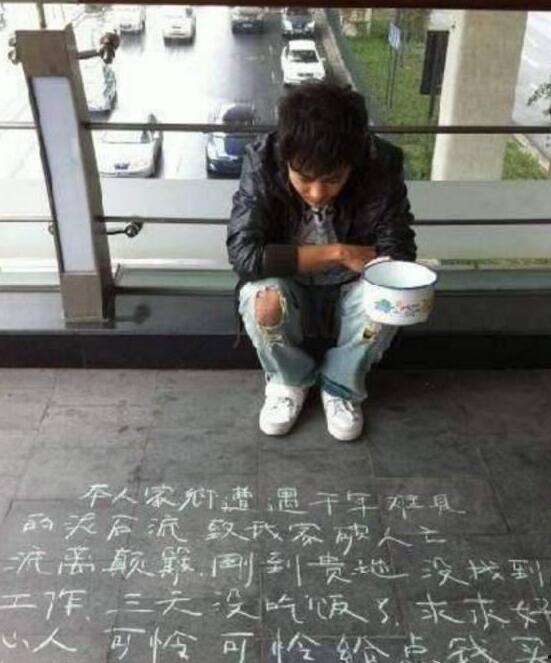 本人家乡遭遇千年难见
的泥石流 致我家破人亡
流离颠簸.刚到贵地 没找到
工作.三天没吃饭了.求求好
心人 可怜可怜给点钱买